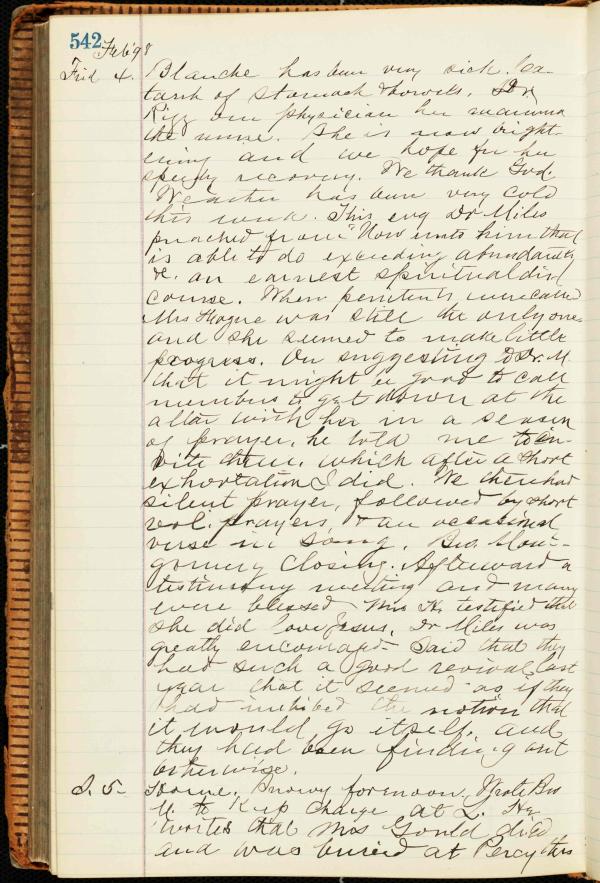 542 Feb '98
Frid 4. Blanche has been very sick. Ca-
tarrh of stomach & bowels. Dr
Rigg our physician her mamma
the nurse. She is now bright-
ening and we hope for her
speedy recovery. We thank God.
Weather has been very cold
this week. This evg Dr Miles
preached from "Now unto him that
is able to do exceeding abundantly
&c. an earnest spiritual dis-
course. When penitents were called
Mrs Hogue was still the only one
and she seemed to make little
progress. On suggesting to Dr. M
that it might be good to call
members to get down at the
altar with her in a season
of prayer, he told me to in-
vite them, which after a short
exhortation I did. We then had
silent prayer, followed by short
vol. prayers, & an occasional
verse in song. Bro. Mont-
gomery closing. Afterward a
testimony meeting and many
were blessed. Mrs H. testified that
she did love Jesus. Dr Miles was
greatly encouraged. Said that they
had such a good revival last
year that it seemed as if they
had imbibed the notion that
it would go itself, and
they had been finding out
otherwise.
S. 5. Home. Snowy forenoon. Wrote Bro
to Keep Charge at L. He
writes that Mrs Gould died
and was buried at Percy this